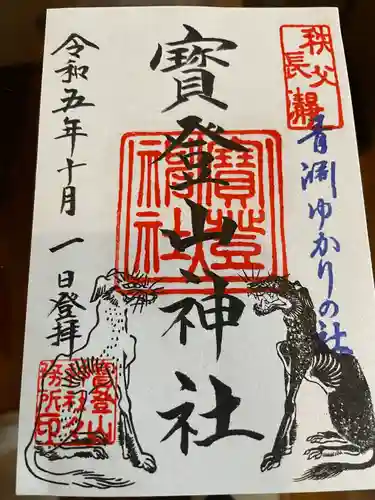 秩父
長瀞
青淵ゆかりの社
寳登山神社
寳登
山神
社
令和五年十月一日登拝
寳登山
神社之
務所印